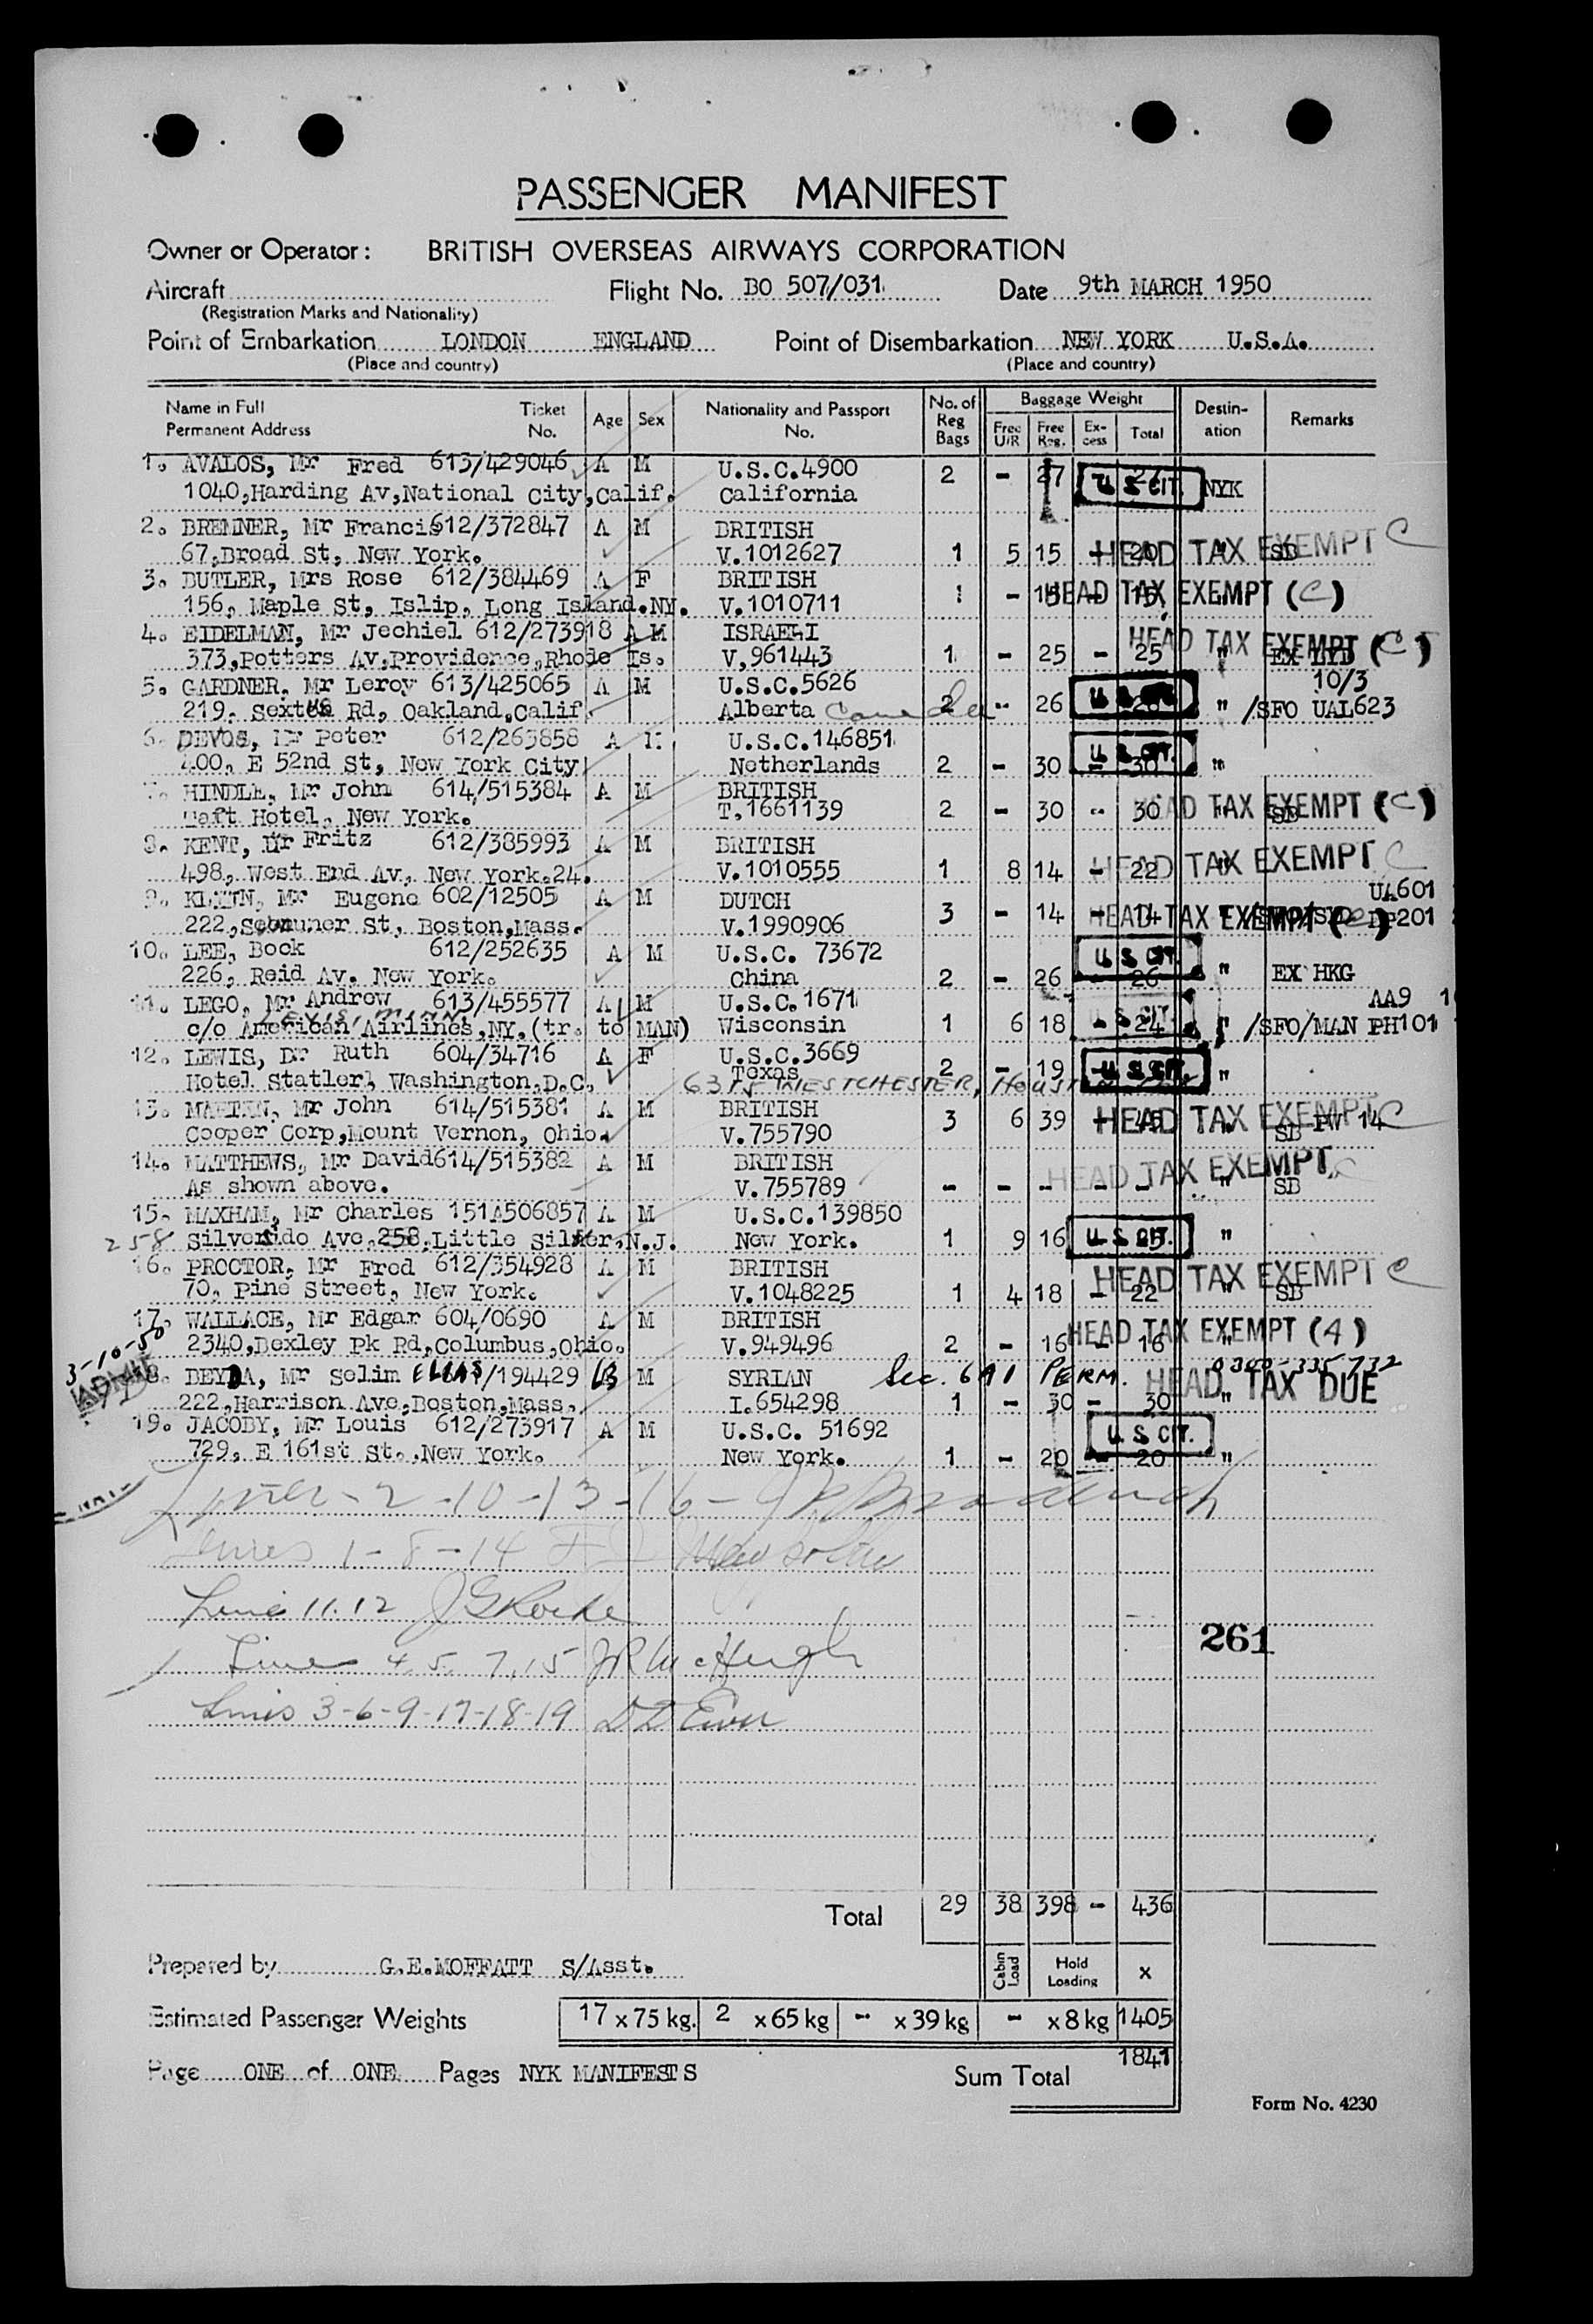 PASSENGER MANIFEST
Owner or Operator: BRITISH OVERSEAS AIRWAYS CORPORATION
Aircraft Flight No. BO 507/031. Date 9th MARCH 1950
(Registration Marks and Nationality)
Point of Embarkation LONDON ENGLAND Point of Disembarkation NEW YORK U.S.A.
(Place and country) (Place and country)
Name in Full Permanent Address Ticket No. Age Sex Nationality and Passport No. No. of Reg Bags Baggage Weight Free U/R Free Reg. Ex-cess Total Destin-ation Remarks
1. AVALOS, Mr Fred 613/429046 A M U.S.C.4900 2 - 27 U S CIT. NYK
1040,Harding Av,National City,Calif. California
2. BREMNER, Mr Francis 612/372847 A M BRITISH
67,Broad St, New York. V.1012627 1 5 15 - 20 " SB HEAD TAX EXEMPT C
3. BUTLER, Mrs Rose 612/384469 A F BRITISH
156, Maple St, Islip, Long Island.NY. V.1010711 1 - 15 - 15 HEAD TAX EXEMPT (C)
4. EIDELMAN, Mr Jechiel 612/273918 A M ISRAELI HEAD TAX EXEMPT (C)
373,Potters Av,Providence,Rhode Is. V,961443 1 - 25 - 25 " EX LYD
5. GARDNER, Mr Leroy 613/425065 A M U.S.C.5626 10/3
219, Rd, Oakland,Calif. Alberta Canada 2 - 26 U S CIT. " /SFO UAL623
6. DEVOS, Mr Peter 612/263858 A M U.S.C.146851
400, E 52nd St, New York City Netherlands 2 - 30 - 30 U S CIT. "
7. HINDLE, Mr John 614/515384 A M BRITISH
Taft Hotel, New York. T,1661139 2 - 30 - 30 " SB HEAD TAX EXEMPT (C)
8. KENT, Mr Fritz 612/385993 A M BRITISH
498, West End Av, New York.24. V.1010555 1 8 14 - 22 " HEAD TAX EXEMPT C
9. Mr Eugene 602/12505 A M DUTCH UA601
222, St, Boston,Mass. V.1990906 3 - 14 - 14 HEAD TAX EXEMPT (C)
10. LEE, Bock 612/252635 A M U.S.C. 73672 U S CIT.
226, Reid Av, New York. China 2 - 26 - 26 " EX HKG
11. LEGO, Mr Andrew 613/455577 A M U.S.C.1671 AA9
c/o American Airlines,NY.(tr. to MAN) Wisconsin 1 6 18 - 24 U S CIT. " /SFO/MAN PH101
12. LEWIS, Dr Ruth 604/34716 A F U.S.C.3669
Hotel Statler, Washington,D.C. Texas 2 - 19 U S CIT. "
6315 WESTCHESTER, HOUSTON
13. Mr John 614/515381 A M BRITISH
Cooper Corp,Mount Vernon, Ohio. V.755790 3 6 39 - 45 " SB PW 14 HEAD TAX EXEMPT C
14. MATTHEWS, Mr David 614/515382 A M BRITISH
As shown above. V.755789 - - - - - " SB HEAD TAX EXEMPT C
15. MAXHAM, Mr Charles 151A506857 A M U.S.C.139850
258 Silverside Ave,258,Little Silver,N.J. New York. 1 9 16 - 25 U S CIT. "
16. PROCTOR, Mr Fred 612/354928 A M BRITISH HEAD TAX EXEMPT C
70, Pine Street, New York. V.1048225 1 4 18 - 22 " SB
17. WALLACE, Mr Edgar 604/0690 A M BRITISH
2340,Bexley Pk Rd,Columbus,Ohio. V.949496 2 - 16 - 16 " HEAD TAX EXEMPT (4)
3-10-50
18. DEYDA, Mr Selim ELIAS /194429 63 M SYRIAN Sec. PERM. 0300-335732
222,Harrison Ave,Boston,Mass. I.654298 1 - 30 - 30 " HEAD TAX DUE
19. JACOBY, Mr Louis 612/273917 A M U.S.C. 51692 U. S CIT.
729, E 161st St.,New York. New York. 1 - 20 - 20 "
Lines - 2 - 10 - 13 - 16 -
Lines 1 - 8 - 14
Line 11.12
Lines 4, 5, 7, 15 J R McHugh
Lines 3-6-9-17-18-19
261
Total 29 38 398 - 436
Prepared by G.E.MOFFATT S/Asst. Cabin Load Hold Loading x
Estimated Passenger Weights 17 x 75 kg. 2 x 65 kg - x 39 kg - x 8 kg 1405
Page ONE of ONE Pages NYK MANIFESTS Sum Total 1841
Form No. 4230